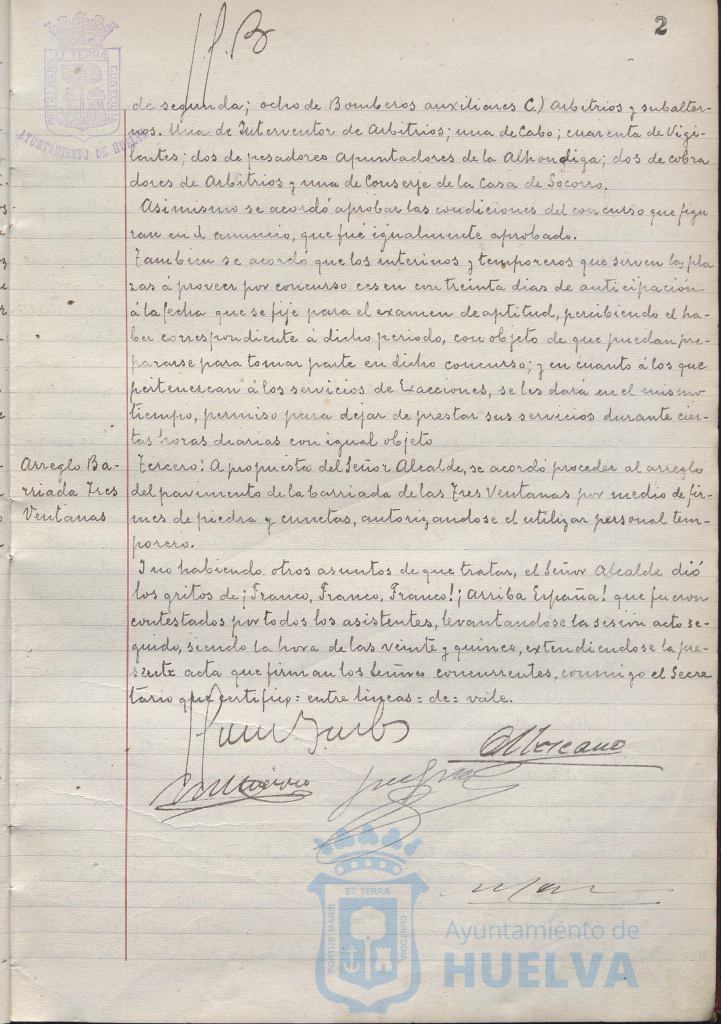 2
J. B
ET TERRÆ
PORTUS MARIS
CUSTODIA
AYUNTAMIENTO DE HUELVA
de segunda; ocho de Bomberos auxiliares C.) Arbitrios y subalter-
nos. Una de Interventor de Arbitrios; una de Cabo; cuarenta de Vigi-
lantes; dos de pesadores Apuntadores de la Alhondiga; dos de cobra
dores de Arbitrios y una de Conserje de la Casa de Socorro.
Asimismo se acordó aprobar las condiciones del concurso que figu
ran en el anuncio, que fué igualmente aprobado.
Tambien se acordó que los interinos y temporeros que sirven las pla
zas á proveer por concurso cesen con treinta dias de anticipación
á la fecha que se fije para el examen de aptitud, percibiendo el ha
ber correspondiente á dicho periodo, con objeto de que puedan pre-
pararse para tomar parte en dicho concurso; y en cuanto á los que
pertenezcan á los servicios de Exacciones, se les dará en el mismo
tiempo, permiso para dejar de prestar sus servicios durante cier-
tas horas diarias con igual objeto
Arreglo Ba-
rriada Tres
Ventanas
Tercero: A propuesta del Señor Alcalde, se acordó proceder al arreglo
del pavimento de la barriada de las Tres Ventanas por medio de fir-
mes de piedra y cunetas, autorizandose el utilizar personal tem-
porero.
I no habiendo otros asuntos de que tratar, el Señor Alcalde dió
los gritos de ¡Franco, Franco, Franco!; ¡Arriba España! que fueron
contestados por todos los asistentes, levantandose la sesión acto se-
guido, siendo la hora de las veinte y quince, extendiendose la pre-
sente acta que firman los Señores concurrentes, conmigo el Secre
tario que certifico = entre lineas = de = vale.
ET TERRÆ
PORTUS MARIS
CUSTODIA
Ayuntamiento de
HUELVA